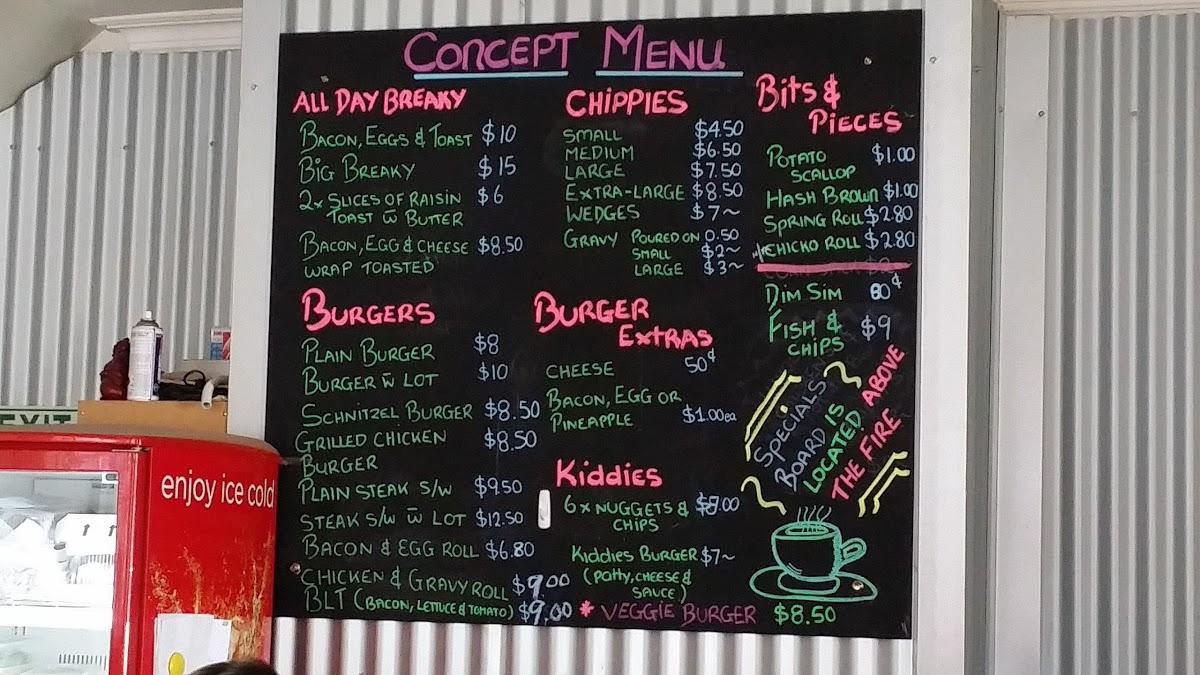 CONCEPT MENU
ALL DAY BREAKY
BACON, EGGS & TOAST $10
BIG BREAKY $15
2x SLICES OF RAISIN $6
TOAST w̄ BUTTER
BACON, EGG & CHEESE $8.50
WRAP TOASTED
BURGERS
PLAIN BURGER $8
BURGER w̄ LOT $10
SCHNITZEL BURGER $8.50
GRILLED CHICKEN $8.50
BURGER
PLAIN STEAK S/W $9.50
STEAK S/W w̄ LOT $12.50
BACON & EGG ROLL $6.80
CHICKEN & GRAVY ROLL $9.00
BLT (BACON, LETTUCE & TOMATO) $9.00
CHIPPIES
SMALL $4.50
MEDIUM $6.50
LARGE $7.50
EXTRA-LARGE $8.50
WEDGES $7~
GRAVY POURED ON 0.50
SMALL $2~
LARGE $3~
BURGER
EXTRAS
CHEESE 50¢
BACON, EGG OR
PINEAPPLE $1.00ea
Kiddies
6x NUGGETS &
CHIPS
Kiddies BURGER $7~
(patty, CHEESE &
SAUCE)
* VEGGIE BURGER $8.50
Bits &
PiECES
POTATO $1.00
SCALLOP
HASH BROWN $1.00
SPRING ROLL $2.80
CHICKO ROLL $2.80
DIM SIM 80¢
FISH & $9
CHIPS
SPECIALS
BOARD IS
LOCATED ABOVE
THE FIRE
EXIT
enjoy ice cold